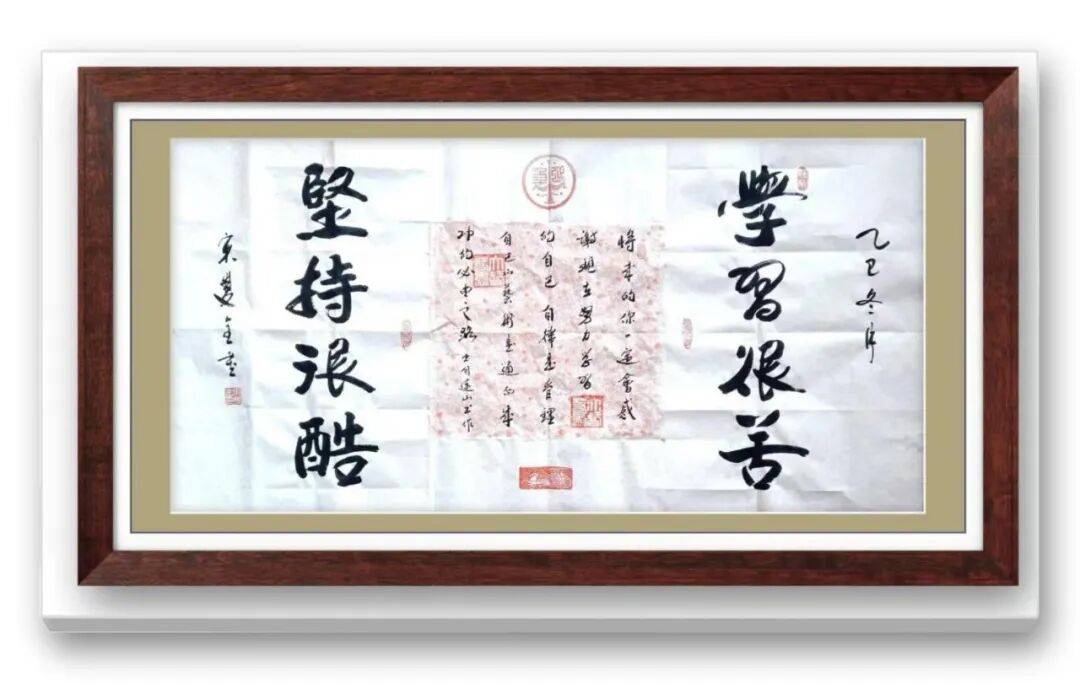 乙巳冬月
學習很苦
将来的你一定會感
謝現在努力学習
的自己 自律是管理
自己的藝術是通向成
功的必由之路
堅持很酷